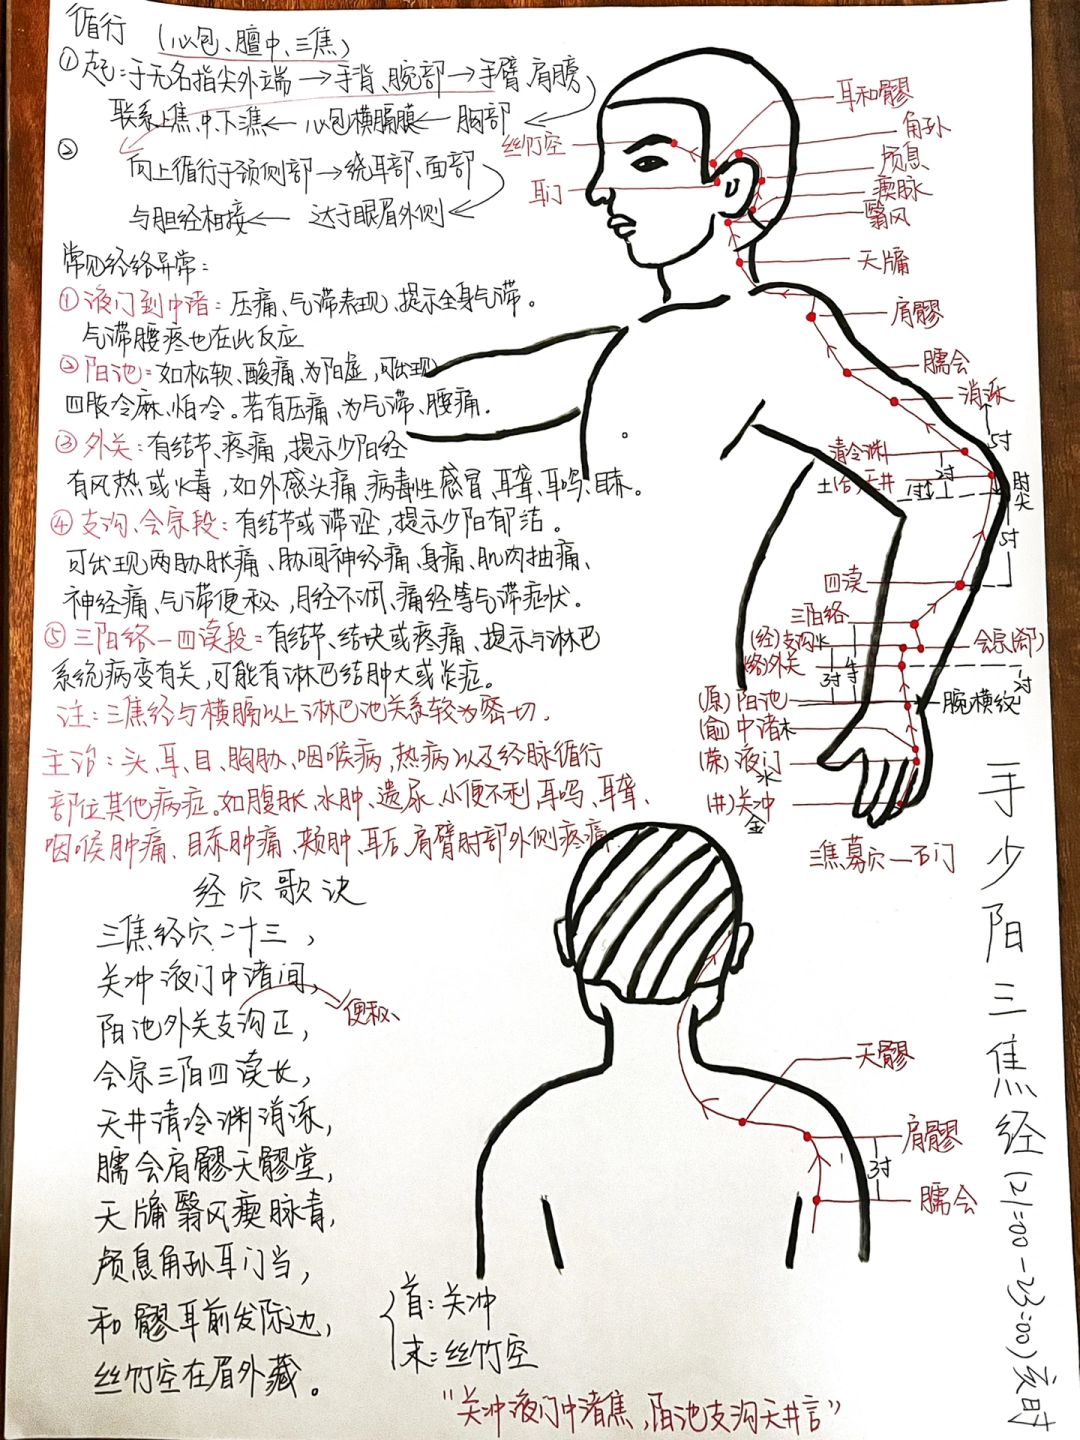 循行 (心包、膻中、三焦)
①起:于无名指尖外端→手背、腕部→手臂、肩膀
联系上焦、中、下焦←心包横膈膜←胸部
②
向上循行于颈侧部→绕耳部、面部
与胆经相接←达于眼眉外侧
常见经络异常:
①液门到中渚:压痛、气滞表现,提示全身气滞。
气滞腰疼也在此反应
②阳池:如松软、酸痛、为阳虚,可出现
四肢冷麻、怕冷。若有压痛、为气滞、腰痛.
③外关:有结节、疼痛,提示少阳经
有风热或火毒,如外感头痛、病毒性感冒、耳聋、耳鸣、目赤。
④支沟、会宗段:有结节或滞涩,提示少阳郁结。
可出现两胁胀痛、肋间神经痛、身痛、肌肉抽痛、
神经痛、气滞便秘,月经不调、痛经等气滞症状。
⑤三阳络—四渎段:有结节、结块或疼痛、提示与淋巴
系统病变有关,可能有淋巴结肿大或炎症。
注:三焦经与横膈以上淋巴池关系较为密切.
主治:头、耳、目、胸胁、咽喉病,热病以及经脉循行
部位其他病症。如腹胀、水肿、遗尿、小便不利、耳鸣、耳聋、
咽喉肿痛、目赤肿痛、颊肿、耳后、肩臂肘部外侧疼痛.
经穴歌诀
三焦经穴二十三,
关冲液门中渚间,
阳池外关支沟正,
便秘
会宗三阳四渎长,
天井清冷渊消泺,
臑会肩髎天髎堂,
天牖翳风瘈脉青,
颅息角孙耳门当,
和髎耳前发际边,
丝竹空在眉外藏。
首:关冲
末:丝竹空
“关冲液门中渚焦,阳池支沟天井言”
耳和髎
角孙
丝竹空
颅息
耳门
瘈脉
翳风
天牖
肩髎
臑会
消泺
5寸
清冷渊
2寸
土(合)天井
1寸
肘尖
5寸
四渎
三阳络
(经)支沟火
会宗(郄)
(络)外关
3寸
4寸
2寸
(原)阳池
腕横纹
(俞)中渚木
(荥)液门
水
(井)关冲
金
三焦募穴—石门
天髎
肩髎
3寸
臑会
手少阳三焦经(21:00-23:00)亥时